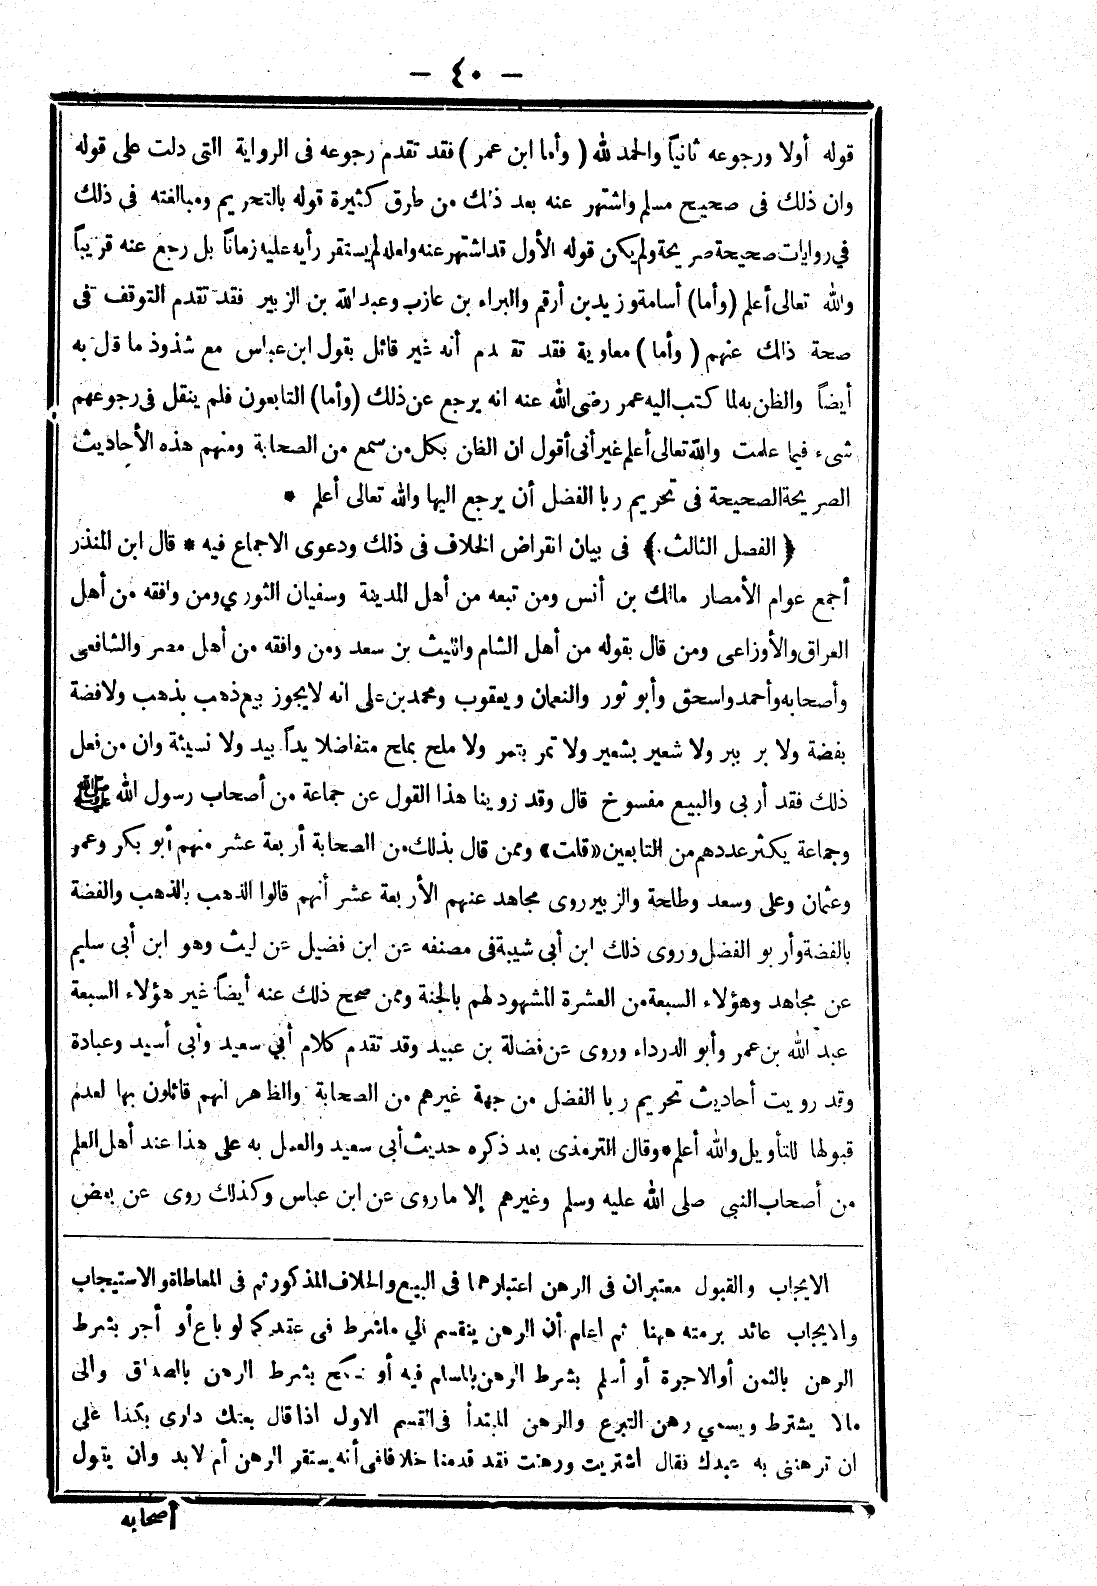 - ٤٠ -
قوله أولا ورجوعه ثانياً والحمد لله ( وأما ابن عمر ) فقد تقدم رجوعه فى الرواية التى دلت على قوله
وان ذلك فى صحيح مسلم واشتهر عنه بعد ذلك من طرق كثيرة قوله بالتحريم ومبالغته فى ذلك
في روايات صحيحة صريحة ولم يكن قوله الأول قد اشتهر عنه ولعله لم يستقر رأيه عليه زماناً بل رجع عنه قريباً
والله تعالى أعلم (وأما) أسامة وزيد بن أرقم والبراء بن عازب وعبد الله بن الزبير فقد تقدم التوقف فى
صحة ذالك عنهم ( وأما ) معاوية فقد تقدم أنه غير قائل بقول ابن عباس مع شذوذ ما قال به
أيضاً والظن به لما كتب اليه عمر رضى الله عنه انه يرجع عن ذلك (وأما) التابعون فلم ينقل فى رجوعهم
شىء فيما علمت والله تعالى أعلم غير أنى أقول ان الظن بكل من سمع من الصحابة ومنهم هذه الأحاديث
الصريحة الصحيحة فى تحريم ربا الفضل أن يرجع اليها والله تعالى أعلم *
﴿ الفصل الثالث ﴾ فى بيان انقراض الخلاف فى ذلك ودعوى الاجماع فيه * قال ابن المنذر
أجمع عوام الأمصار مالك بن أنس ومن تبعه من أهل المدينة وسفيان الثوري ومن وافقه من أهل
العراق والأوزاعى ومن قال بقوله من أهل الشام والليث بن سعد ومن وافقه من أهل مصر والشافعى
وأصحابه وأحمد واسحق وأبو ثور والنعمان ويعقوب ومحمد بن على انه لا يجوز بيع ذهب بذهب ولا فضة
بفضة ولا بر ببر ولا شعير بشعير ولا تمر بتمر ولا ملح بملح متفاضلا يداً بيد ولا نسيئة وان من فعل
ذلك فقد أربى والبيع مفسوخ قال وقد روينا هذا القول عن جماعة من أصحاب رسول الله ﷺ
وجماعة يكثر عددهم من التابعين «قلت» وممن قال بذلك من الصحابة أربعة عشر منهم أبو بكر وعمر
وعثمان وعلى وسعد وطلحة والزبير روى مجاهد عنهم الأربعة عشر أنهم قالوا الذهب بالذهب والفضة
بالفضة وأربو الفضل وروى ذلك ابن أبى شيبة فى مصنفه عن ابن فضيل عن ليث وهو ابن أبى سليم
عن مجاهد وهؤلاء السبعة من العشرة المشهود لهم بالجنة وممن صح ذلك عنه أيضاً غير هؤلاء السبعة
عبد الله بن عمر وأبو الدرداء وروى عن فضالة بن عبيد وقد تقدم كلام أبي سعيد وأبى أسيد وعبادة
وقد رويت أحاديث تحريم ربا الفضل من جهة غيرهم من الصحابة والظاهر انهم قائلون بها لعدم
قبولها للتأويل والله أعلم * وقال الترمذى بعد ذكره حديث أبى سعيد والعمل به على هذا عند أهل العلم
من أصحاب النبي صلى الله عليه وسلم وغيرهم إلا ما روى عن ابن عباس وكذلك روى عن بعض
الايجاب والقبول معتبران فى الرهن اعتبارهما فى البيع والخلاف المذكور ثم فى المعاطاة والاستيجاب
والايجاب عائد برمته ههنا ثم اعلم أن الرهن ينقسم الي ما شرط فى عقد كما لو باع أو أجر بشرط
الرهن بالثمن أو الاجرة أو أسلم بشرط الرهن بالمسلم فيه أو نكح بشرط الرهن بالصداق والى
مالا يشترط ويسمي رهن التبرع والرهن المبتدأ فى القسم الاول اذا قال بعتك دارى بكذا على
ان ترهننى به عبدك فقال اشتريت ورهنت فقد قدمنا خلافا فى أنه يستقر الرهن أم لا بد وان يقول
أصحابه